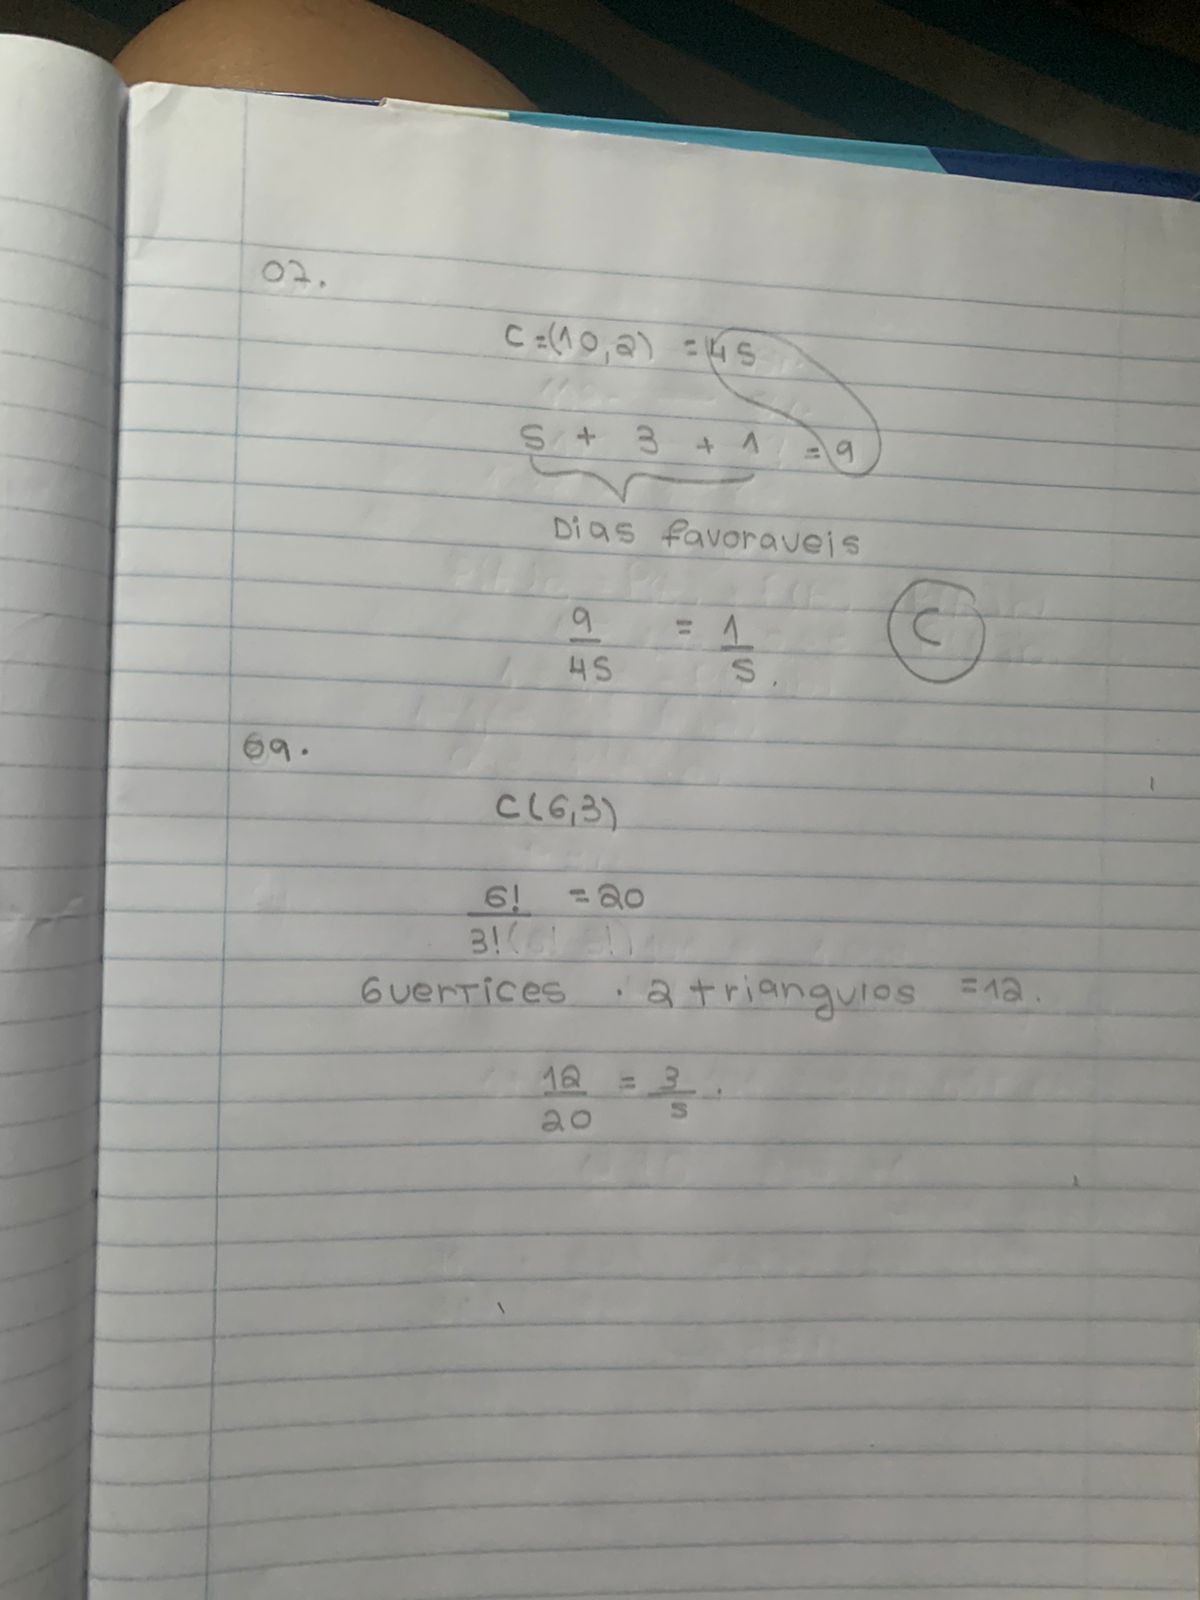 07.
C=(10,2) =45
5 + 3 + 1 =9
Dias favoraveis
9/45 = 1/5.
C
69.
C(6,3)
6!/3! =20
6vertices . 2 triangulos =12.
12/20 = 3/5.